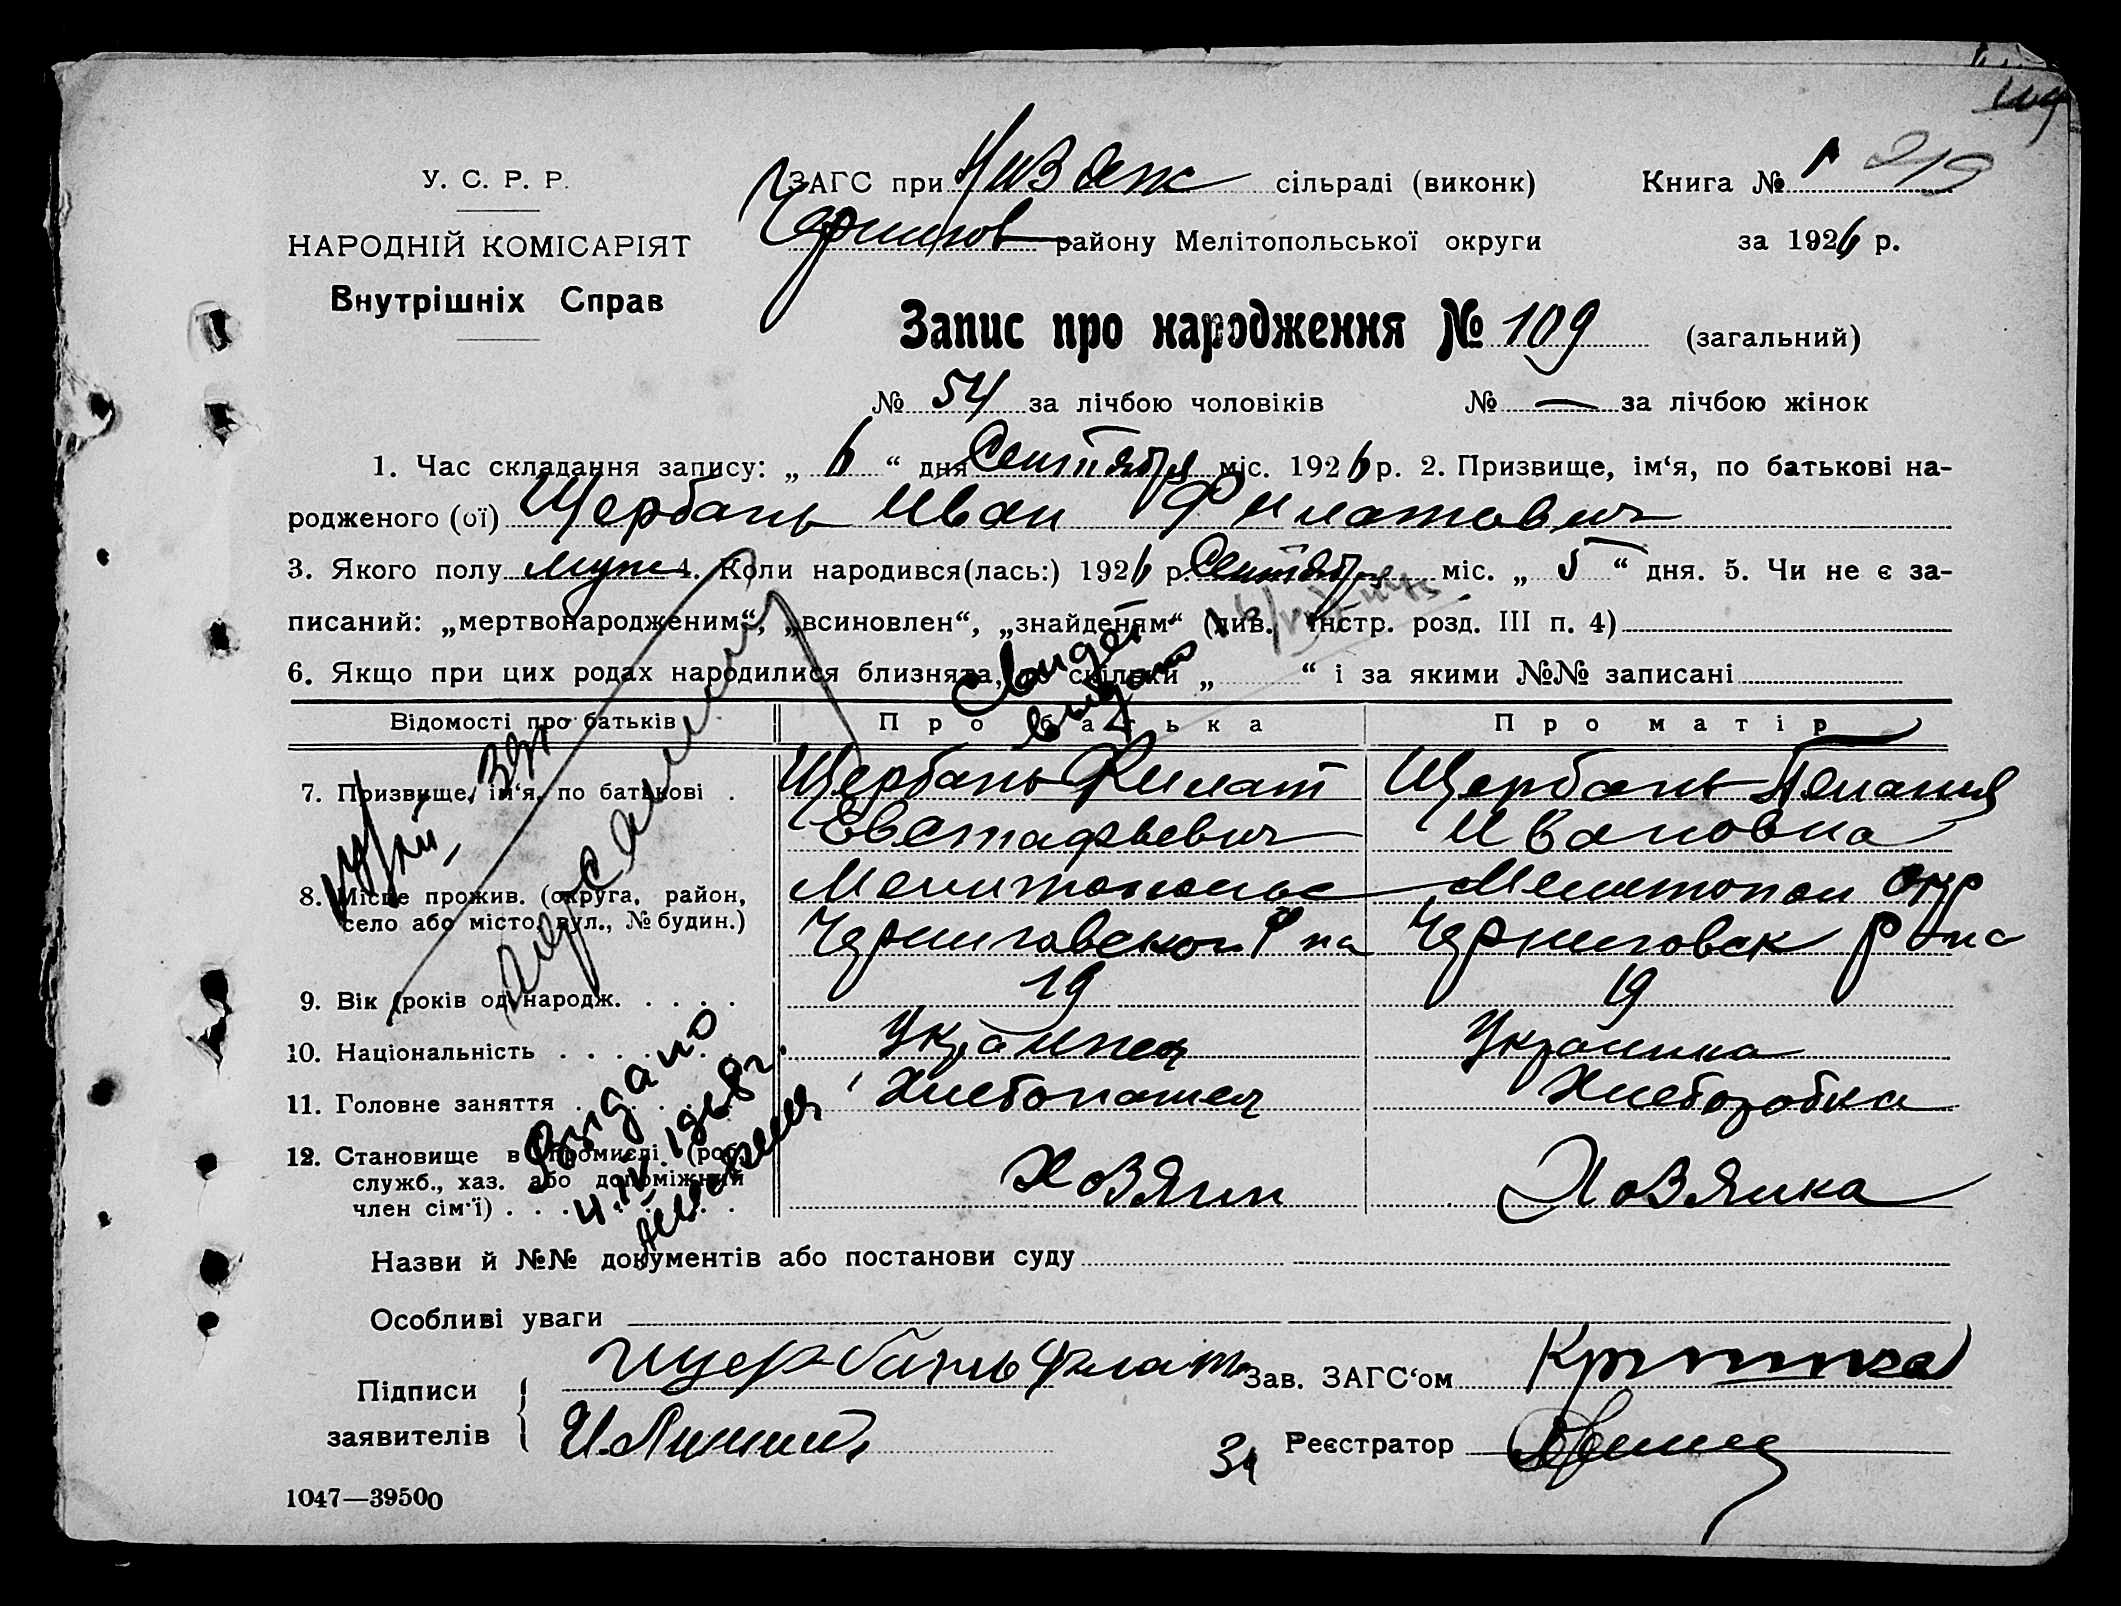 109
219
У. С. Р. Р.
ЗАГС при Низ сільраді (виконк) Книга № 1
НАРОДНІЙ КОМІСАРІЯТ
Чернигов району Мелітопольської округи за 1926 р.
Внутрішніх Справ
Запис про народження № 109 (загальний)
№ 54 за лічбою чоловіків № — за лічбою жінок
1. Час складання запису: „ 6 “ дня Сентября міс. 1926 р. 2. Призвище, ім‘я, по батькові на-
родженого (ої) Щербань Иван Филатович
3. Якого полу муж 4. Коли народився(лась:) 1926 р. Сентября міс. „ 5 “ дня. 5. Чи не є за-
писаний: „мертвонародженим“, „всиновлен“, „знайденям“ (див. інстр. розд. III п. 4)
6. Якщо при цих родах народилися близнята, то скільки „ “ і за якими №№ записані
Свидет
выдано
Відомості про батьків Про батька Про матір
7. Призвище, ім‘я, по батькові . Щербань Филат Щербань Пелагия
Евстафьевич Ивановна
8. Місце прожив. (округа, район, Мелитопольс Мелитопол окр
село або місто, вул., № будин.) Черниговского р на Черниговск р на
9. Вік (років од народж. . . . . 19 19
10. Національність . . . . . Украинец Украинка
11. Головне заняття . . . . . Хлебопашец Хлеборобка
12. Становище в промислі (роб.,
служб., хаз. або допоміжний Хозяин Хозяйка
член сім‘ї) . . . . .
Выдано
4.IV.1968г.
Назви й №№ документів або постанови суду
Особливі уваги
Підписи Щербань Филат Зав. ЗАГС‘ом
заявителів Реєстратор
За
1047—39500